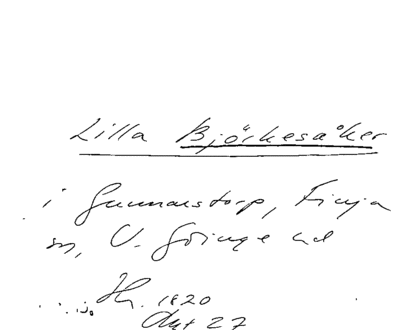 Lilla Björkesåker
i Gunnarstorp, Finja
sn, V. Göinge hd
1820
Akt 27